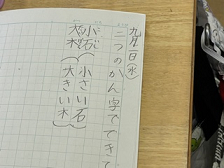 九月一日(水)
二つのかん字でできて
小石
小さい石
大木
大きい木